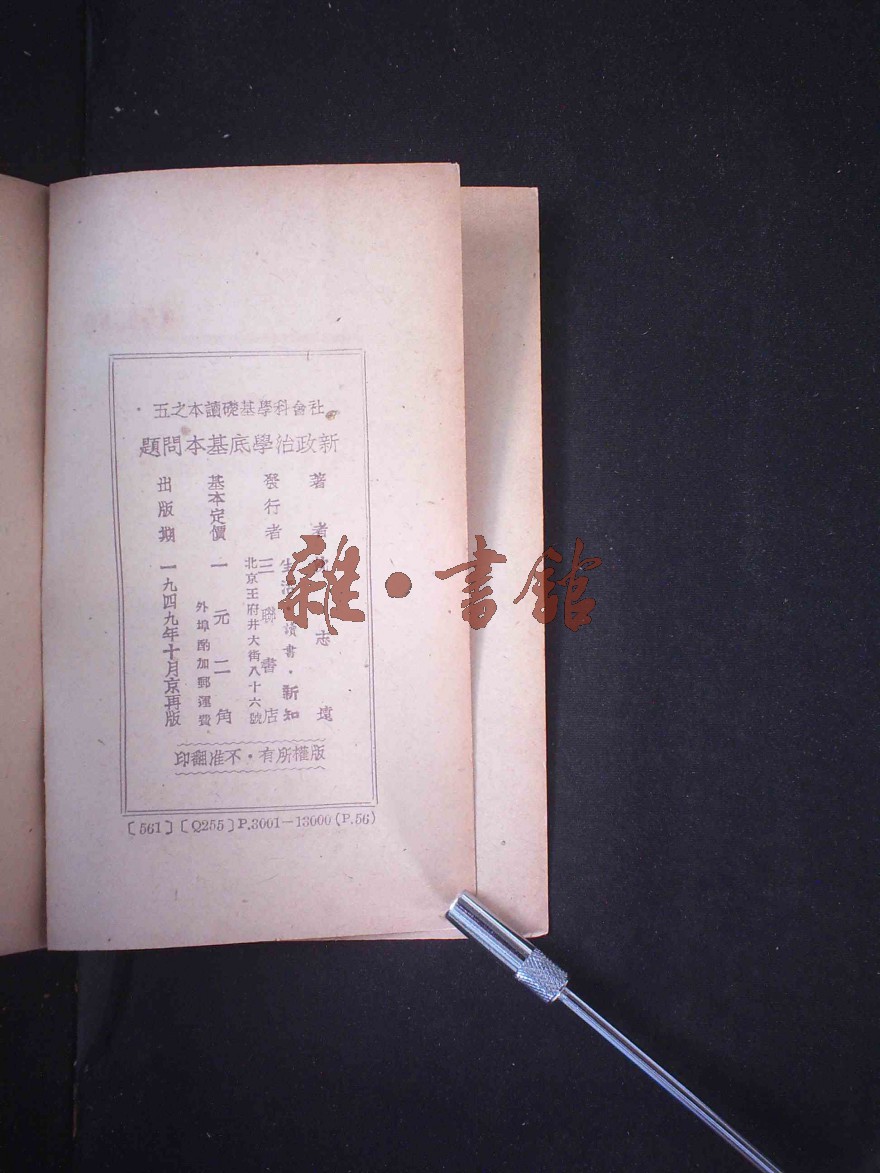 社會科學基礎讀本之五
新政治學底基本問題
著者 志遠
發行者 生活 讀書·新知
三聯書店
北京王府井大街八十六號
基本定價 一元二角
外埠酌加郵運費
出版期 一九四九年十月京再版
版權所有·不准翻印
〔561〕〔Q255〕P.3001—13000(P.56)
雜·書館